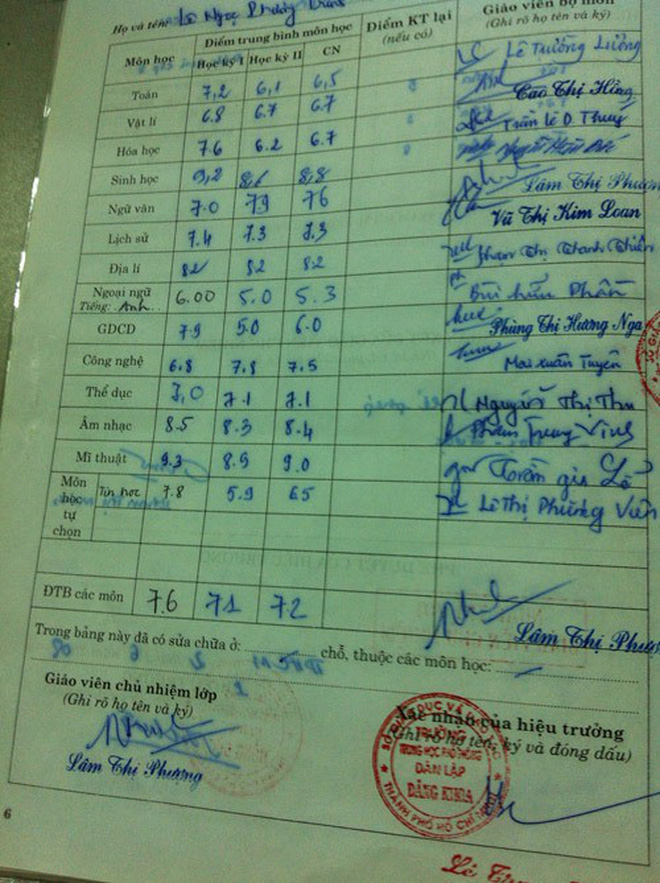 Họ và tên: Lê Ngọc Phương
Môn học Điểm trung bình môn học Điểm KT lại (nếu có) Giáo viên bộ môn (Ghi rõ họ tên và ký)
Học kỳ I Học kỳ II CN
Toán 7,2 6,1 6,5 Lê Trường Lưỡng
Vật lí 6.8 6.7 6.7 Cao Thị Hồng
Hóa học 7.6 6.2 6.7 Trần Lê D.
Sinh học 9,2 8,6 8,8
Ngữ văn 7.0 7.9 7.6 Lâm Thị Phượng
Lịch sử 7.4 7.3 7.3 Vũ Thị Kim Loan
Địa lí 8.2 8.2 8.2 Phạm Thị Thanh Thiên
Ngoại ngữ 6.00 5.0 5.3 Bùi Hữu Phần
Tiếng: Anh
GDCD 7.9 5.0 6.0 Phùng Thị Hương Nga
Công nghệ 6.8 7.8 7.5 Mai Xuân Tuyên
Thể dục 7,0 7.1 7.1 Nguyễn Thị Thu
Âm nhạc 8.5 8.3 8.4 Phạm Trung Vinh
Mĩ thuật 9.3 8.9 9.0 Trần Gia
Môn học tự chọn Tin học 7.8 5.9 6.5 Lê Thị Phương Viên
ĐTB các môn 7.6 7.1 7.2 Lâm Thị Phượng
Trong bảng này đã có sửa chữa ở: ........ chỗ, thuộc các môn học:
Giáo viên chủ nhiệm lớp
(Ghi rõ họ tên và ký)
Lâm Thị Phượng
Xác nhận của hiệu trưởng
(Ghi rõ họ tên, ký và đóng dấu)
SỞ GIÁO DỤC VÀ
TRƯỜNG
TRUNG HỌC PHỔ THÔNG
DÂN LẬP
ĐĂNG KHOA
THÀNH PHỐ HỒ CHÍ MINH
6
Lê